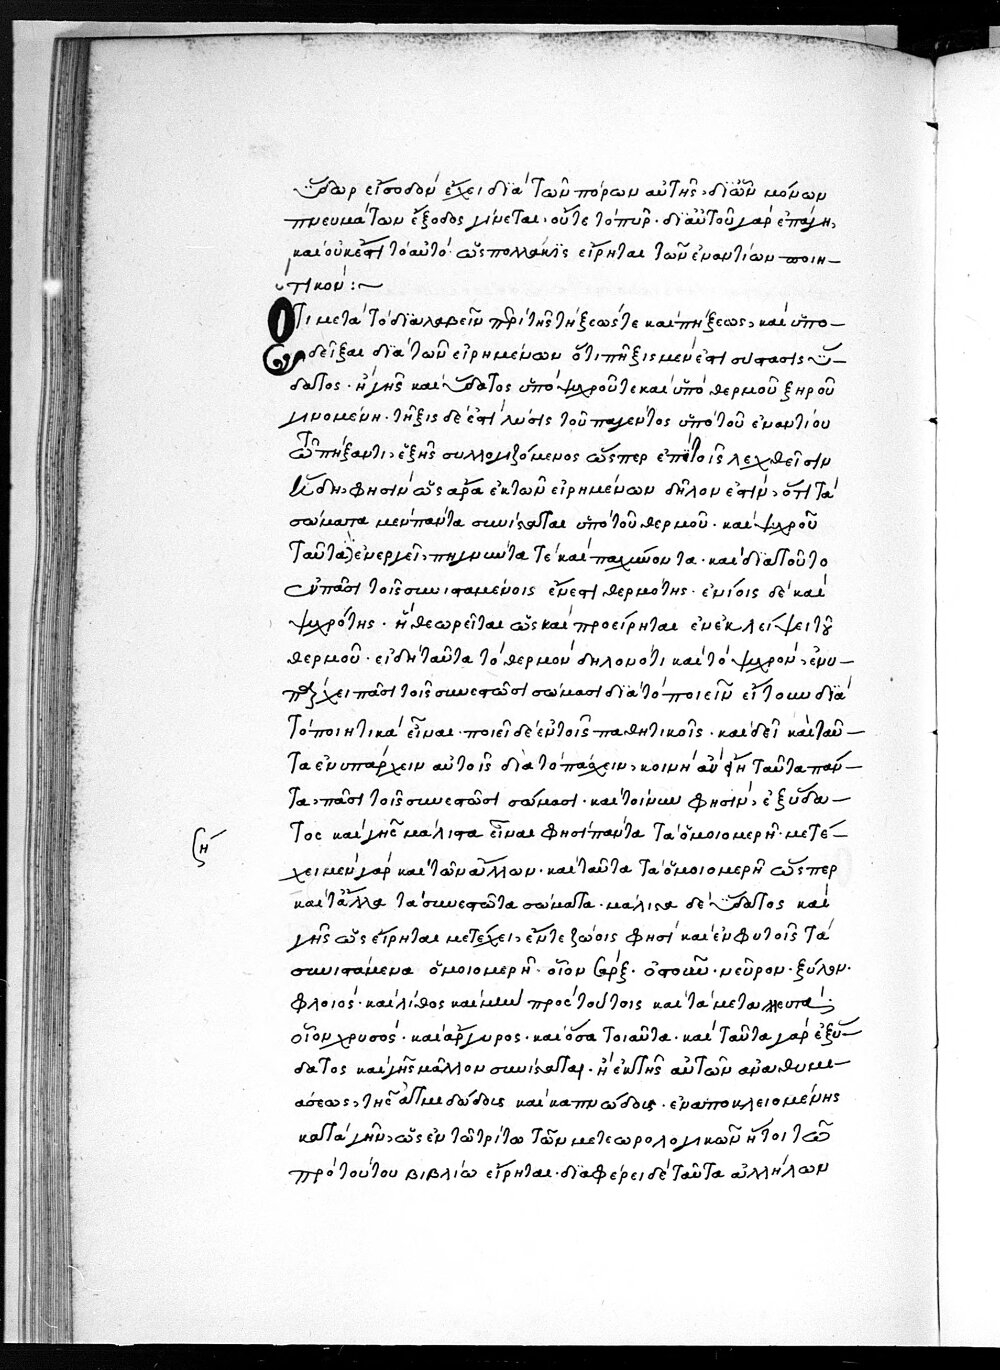 ὕδωρ εἴσοδον ἔχει διὰ τῶν πόρων αὐτῆς, δι' ὧν μόνων
πνευμάτων ἔξοδος γίνεται, οὔτε τὸ πῦρ. δι' αὐτοῦ γὰρ ἐπάγη,
καὶ οὐκ ἔστι τὸ αὐτὸ ὡς πολλάκις εἴρηται τῶν ἐναντίων ποιη-
τικόν :~
Ὅτι μετὰ τὸ διαλαβεῖν περὶ τῆς τήξεώς τε καὶ πήξεως, καὶ ὑπο-
δεῖξαι διὰ τῶν εἰρημένων ὅτι πῆξις μέν ἐστι σύστασις ὕ-
δατος. ἢ γῆς καὶ ὕδατος ὑπὸ ψυχροῦ τε καὶ ὑπὸ θερμοῦ ξηροῦ
γινομένη. τῆξις δέ ἐστι λύσις τοῦ παγέντος ὑπὸ τοῦ ἐναντίου
τῷ πήξαντι, ἑξῆς συλλογιζόμενος ὥσπερ ἐπὶ τοῖς λεχθεῖσιν
ἤδη, φησὶν ὡς ἄρα ἐκ τῶν εἰρημένων δῆλον ἐστὶν, ὅτι τὰ
σώματα μὲν πάντα συνίσταται ὑπὸ τοῦ θερμοῦ. καὶ ψυχροῦ
ταῦτα δὲ ἐνεργεῖ, πηγνύντα τὲ καὶ παχύνοντα. καὶ διὰ τοῦτο
ἐν πᾶσι τοῖς συνισταμένοις ἔνεστι θερμότης. ἐνίοις δὲ καὶ
ψυχρότης. ἣ θεωρεῖται ὡς καὶ προείρηται ἐν ἐκλείψει τοῦ
θερμοῦ. εἰ δὴ ταῦτα τὸ θερμὸν δηλονότι καὶ τὸ ψυχρὸν, ἐνυ-
πάρχει πᾶσι τοῖς συνεστῶσι σώμασι διὰ τὸ ποιεῖν εἴτουν διὰ
τὸ ποιητικὰ εἶναι. ποιεῖ δὲ ἐν τοῖς παθητικοῖς. καὶ δεῖ καὶ ταῦ-
τα ἐνυπάρχειν αὐτοῖς διὰ τὸ πάσχειν, κοινῇ ἂν εἴη ταῦτα πάν-
τα, πᾶσι τοῖς συνεστῶσι σώμασι. καὶ τοίνυν φησὶν, ἐξ ὕδα-
τος καὶ γῆς μάλιστα εἶναι φησὶ πάντα τὰ ὁμοιομερῆ. μετέ-
χει μὲν γὰρ καὶ τῶν ἄλλων. καὶ ταῦτα τὰ ὁμοιομερῆ ὥσπερ
καὶ τἄλλα τὰ συνεστῶτα σώματα. μάλιστα δὲ ὕδατος καὶ
γῆς ὡς εἴρηται μετέχει, ἔν τε ζώοις φησὶ καὶ ἐν φυτοῖς τὰ
συνιστάμενα ὁμοιομερῆ. οἷον σάρξ. ὀστοῦν. νεῦρον. ξύλον.
φλοιός. καὶ λίθος καὶ πρὸς τούτοις καὶ τὰ μεταλλευτά.
οἷον χρυσός. καὶ ἄργυρος. καὶ ὅσα τοιαῦτα. καὶ ταῦτα γὰρ ἐξ ὕ-
δατος καὶ γῆς μᾶλλον συνίσταται. ἢ ἐκ τῆς αὐτῶν ἀναθυμι-
άσεως, τῆς ἀτμιδώδους καὶ καπνώδους. ἐναποκλειομένης
κατὰ γῆν, ὡς ἐν τῷ τρίτω τῶν μετεωρολογικῶν ἤτοι τῷ
πρὸ τούτου βιβλίω εἴρηται. διαφέρει δὲ ταῦτα ἀλλήλων